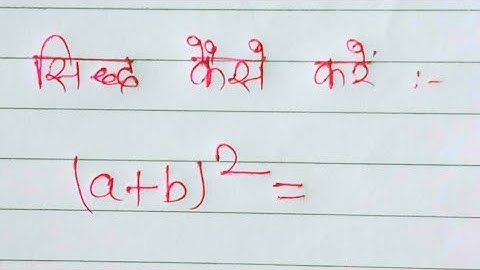 सिद्ध कैसे करें :-
(a+b)² =